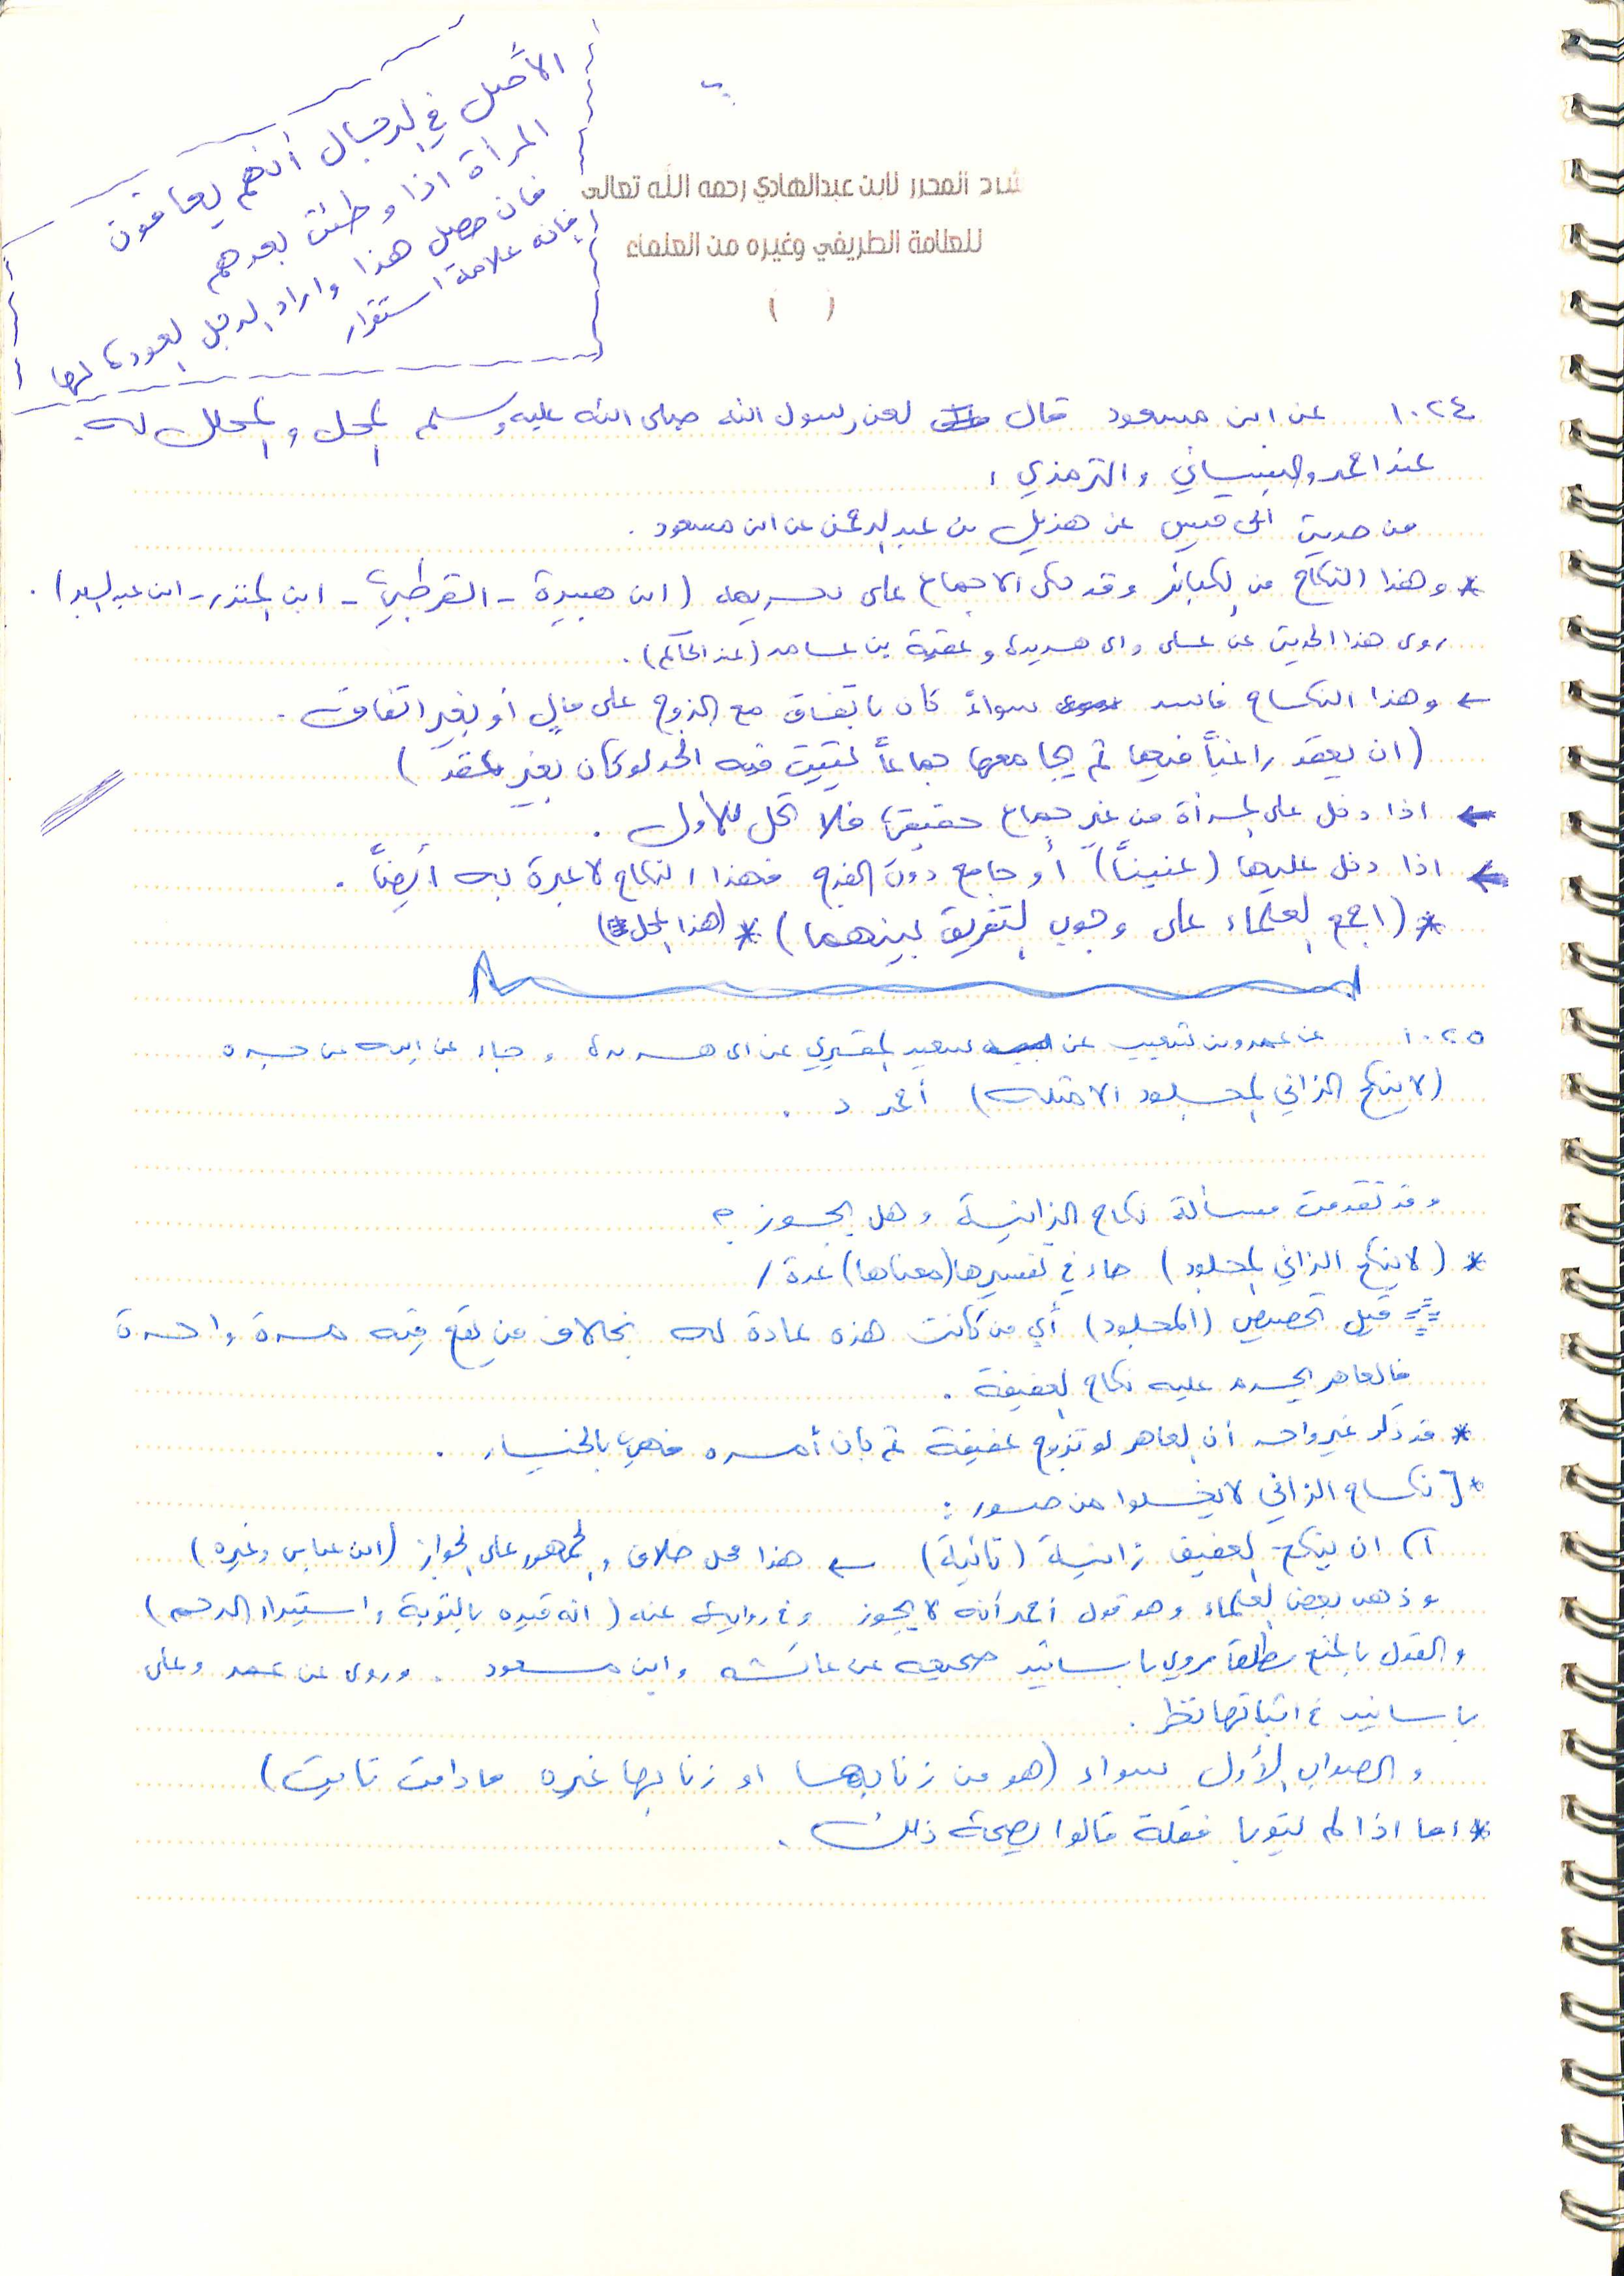 الأصل في الرجال أنهم يعافون
المرأة اذا وطئت بعدهم
فان حصل هذا واراد الرجل العودة لها
فإنه علامة استقرار
شرح المحرر لابن عبدالهادي رحمه الله تعالى
للعلامة الطريفي وغيره من العلماء
( )
١٠٢٤ عن ابن مسعود قال لعن رسول الله صلى الله عليه وسلم المحل والمحلل له.
عند احمد والنسائي والترمذي
من حديث ابي قيس عن هذيل بن عبدالرحمن عن ابن مسعود .
* وهذا النكاح من الكبائر وقد حكى الاجماع على تحريمه (ابن هبيرة - القرطبي - ابن المنذر - ابن عبدالبر) .
روى هذا الحديث عن علي وابي هريرة وعقبة بن عامر (عند الحاكم) .
← وهذا النكاح فاسد سواءً كان باتفاق مع الزوج على مالٍ أو بغير اتفاق .
(ان يعقد راغباً فيها ثم يجامعها جماعاً يثبت فيه الحد لو كان بغير عقد)
← اذا دخل على المرأة من غير جماع حقيقي فلا تحل للأول .
← اذا دخل عليها (عنيناً) أو جامع دون الفرج فهذا النكاح لا عبرة به أيضاً .
* (اجمع العلماء على وجوب التفريق بينهما) * (هذا المحل)
١٠٢٥ عن عمرو بن شعيب عن سعيد المقبري عن ابي هريرة وجاء عن ابيه عن جده
(لا ينكح الزاني المجلود الا مثله) أحمد د .
وقد تقدمت مسألة نكاح الزانية وهل يجوز ؟
* (لا ينكح الزاني المجلود) جاء في تفسيرها (معناها) عدة /
قيل تخصيص (المجلود) أي من كانت هذه عادة له بخلاف من يقع فيه مرة واحدة
فالعاهر يحرم عليه نكاح العفيفة .
* قد ذكر غير واحد أن العاهر لو تزوج عفيفة ثم بان أمره فهي بالخيار .
* نكاح الزاني لا يخلوا من صور :
١) ان ينكح العفيف زانية (تائبة) ← هذا محل خلاف والجمهور على الجواز (ابن عباس وغيره)
وذهب بعض العلماء وهو قول أحمد أنه لا يجوز وفي رواية عنه (انه قيده بالتوبة واستبراء الرحم)
والقول بالمنع مطلقا مروي باسانيد صحيحه عن عائشه وابن مسعود . وروى عن عمر وعلي
باسانيد في اثباتها نظر .
والصواب الأول سواء (هو من زنا بها او زنا بها غيره ما دامت تابت)
* اما اذا لم يتوبا فقلة قالوا بصحة ذلك .